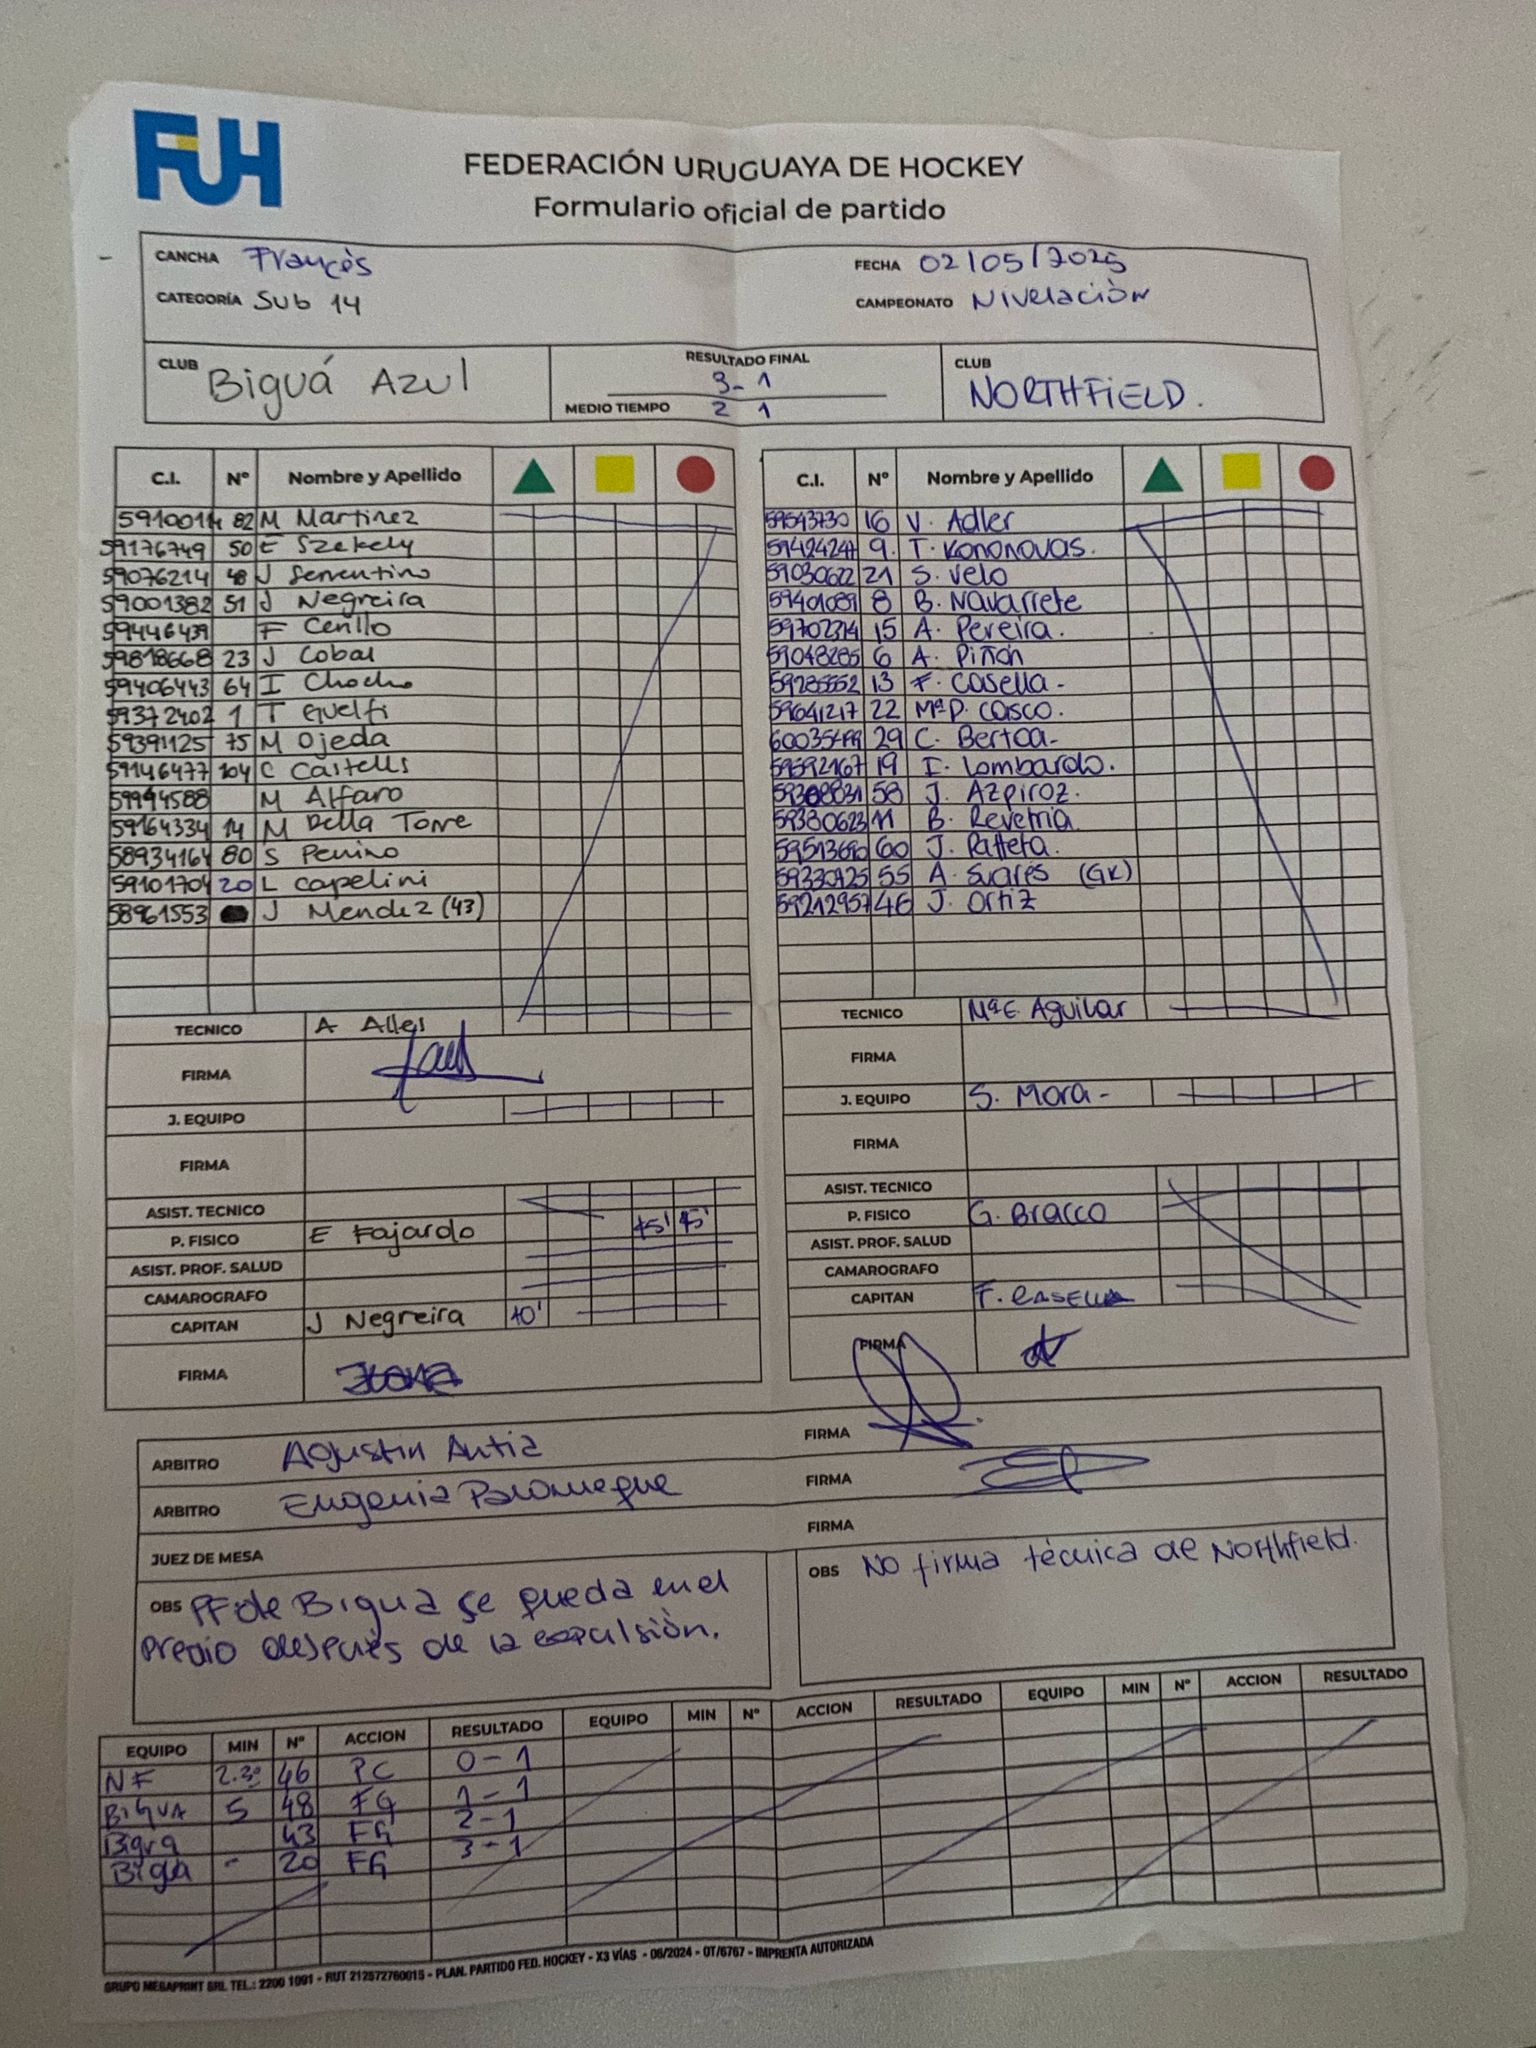 FUH
FEDERACIÓN URUGUAYA DE HOCKEY
Formulario oficial de partido
CANCHA Francès FECHA 02/05/2025
CATEGORÍA Sub 14 CAMPEONATO Nivelaciòn
CLUB Biguá Azul
RESULTADO FINAL
3-1
MEDIO TIEMPO 2 1
CLUB NORTHFIELD.
C.I. Nº Nombre y Apellido
82 M Martinez
59176749 50 E Szekely
59076214 48 J Serrentino
59001382 51 J Negreira
59446439 F Cerillo
59818668 23 J Cobas
59406443 64 I Chocho
59372402 1 T Guelfi
59391125 75 M Ojeda
59146477 104 C Castells
59994588 M Alfaro
59164334 14 M Della Torre
58934164 80 S Perrino
59101704 20 L Capelini
58961553 J Mendez (43)
TECNICO A Alles
FIRMA
J. EQUIPO
FIRMA
ASIST. TECNICO
P. FISICO E Fajardo 45' 45'
ASIST. PROF. SALUD
CAMAROGRAFO
CAPITAN J Negreira 40'
FIRMA
C.I. Nº Nombre y Apellido
59543730 16 V. Adler
59424247 9. T. Kononovas.
59030622 21 S. Velo
59401089 8 B. Navarrete
59702314 15 A. Pereira.
59048285 6 A. Piñón
59285552 13 F. Casella-
59641217 22 MªP. Casco.
29 C. Bertoa-
59592167 19 I. Lombardo.
58 J. Azpiroz.
59380623 11 B. Reverria.
60 J. Patteta.
55 A. Suarés (GK)
59212957 46 J. Ortiz
TECNICO MªE. Aguilar
FIRMA
J. EQUIPO S. Mora-
FIRMA
ASIST. TECNICO
P. FISICO G. Bracco
ASIST. PROF. SALUD
CAMAROGRAFO
CAPITAN F. CASELLA
FIRMA
ARBITRO Agustin Antia FIRMA
ARBITRO Eugenia Palomeque FIRMA
JUEZ DE MESA FIRMA
OBS PF de Bigua se queda en el
predio despuès de la expulsiòn.
OBS No firma tècnica de Northfield.
EQUIPO MIN Nº ACCION RESULTADO EQUIPO MIN Nº ACCION RESULTADO EQUIPO MIN Nº ACCION RESULTADO
NF 46 PC 0-1
BIGUA 5 48 FG 1-1
Bigua 43 FG 2-1
Bigua - 20 FG 3-1
GRUPO MEGAPRINT SRL TEL.: 2200 1091 - RUT 212572760015 - PLAN. PARTIDO FED. HOCKEY - X3 VÍAS - 06/2024 - OT/6767 - IMPRENTA AUTORIZADA